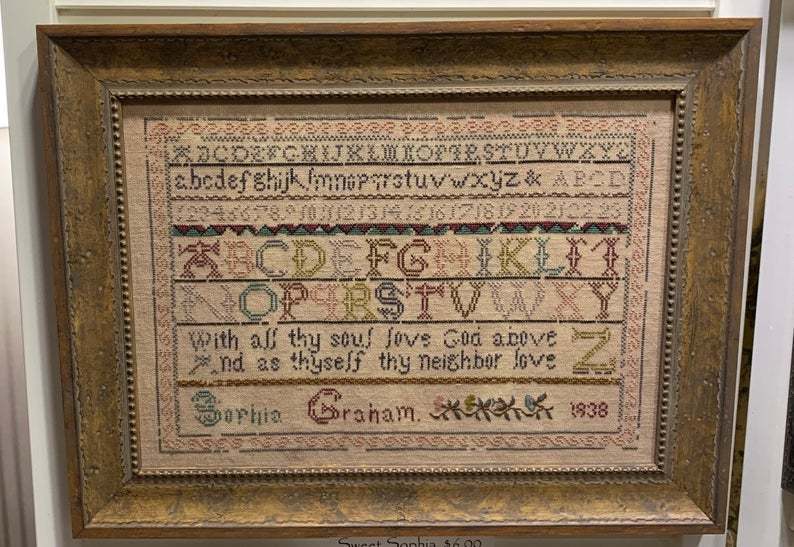 ABCDEFGHIJKLMNOPQRSTUVWXYZ
abcdefghijklmnopqrstuvwxyz & ABCD
1 2 3 4 5 6 7 8 9 10 11 12 13 14 15 16 17 18 19 20 21 22 23
ABCDEFGHIKLM
NOPQRSTVWXY
With all thy soul love God above Z
And as thyself thy neighbor love
Sophia Graham. 1838
Sweet Sophia $6.00